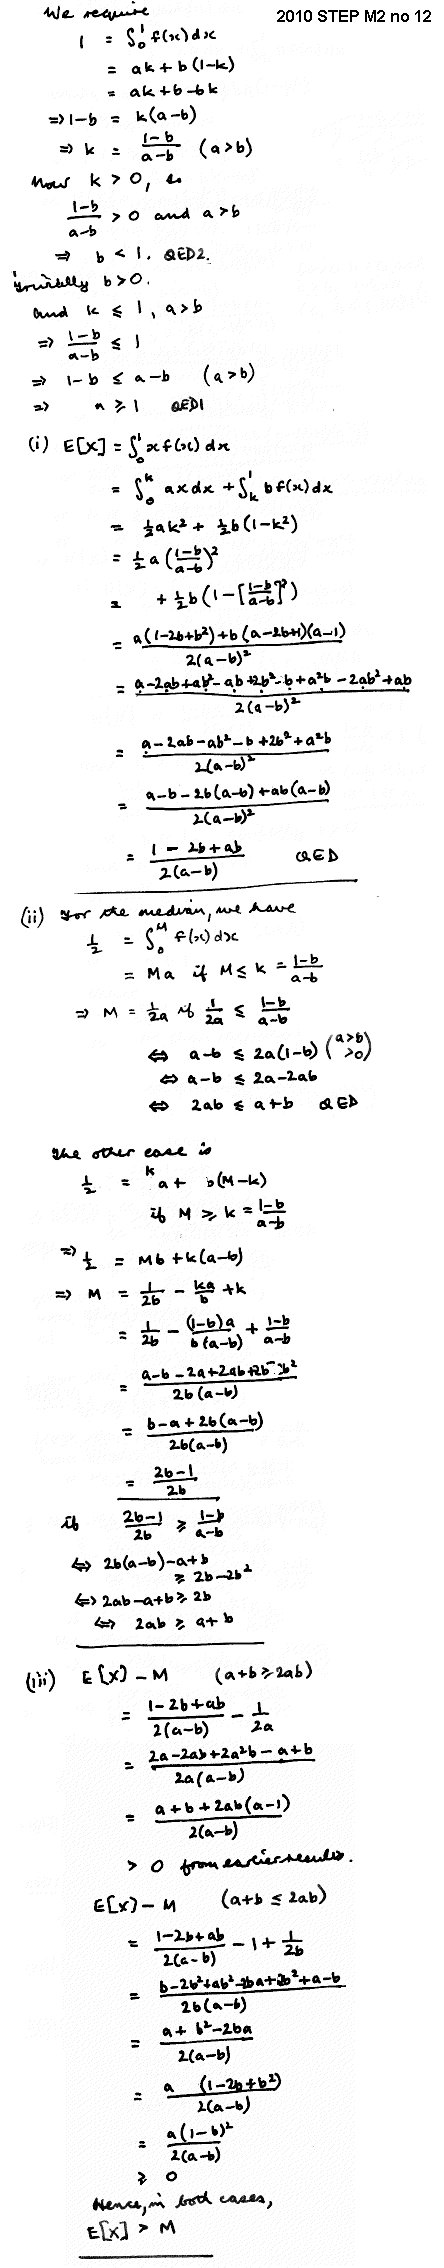 2010 STEP M2 no 12
We require
1 = ∫₀¹ f(x) dx
= ak + b(1-k)
= ak + b - bk
⇒ 1-b = k(a-b)
⇒ k = (1-b)/(a-b) (a>b)
Now k > 0, so
(1-b)/(a-b) > 0 and a>b
⇒ b < 1. QED2.
Trivially b>0.
and k ≤ 1, a>b
⇒ (1-b)/(a-b) ≤ 1
⇒ 1-b ≤ a-b (a>b)
⇒ a ≥ 1 QED1
(i) E[X] = ∫₀¹ x f(x) dx
= ∫₀ᵏ ax dx + ∫ₖ¹ b f(x) dx
= ½ak² + ½b(1-k²)
= ½a((1-b)/(a-b))²
= + ½b(1-[(1-b)/(a-b)]²)
= (a(1-2b+b²)+b(a-2b+1)(a-1))/(2(a-b)²)
= (a-2ab+ab²-ab+2b²-b+a²b-2ab²+ab)/(2(a-b)²)
= (a-2ab-ab²-b+2b²+a²b)/(2(a-b)²)
= (a-b-2b(a-b)+ab(a-b))/(2(a-b)²)
= (1-2b+ab)/(2(a-b)) QED
(ii) For the median, we have
½ = ∫₀ᴹ f(x) dx
= Ma if M ≤ k = (1-b)/(a-b)
⇒ M = 1/2a if 1/2a ≤ (1-b)/(a-b)
⇔ a-b ≤ 2a(1-b) (a>b >0)
⇔ a-b ≤ 2a-2ab
⇔ 2ab ≤ a+b QED
The other case is
½ = ka + b(M-k)
if M ≥ k = (1-b)/(a-b)
⇒ ½ = Mb + k(a-b)
⇒ M = 1/2b - ka/b + k
= 1/2b - (1-b)a/(b(a-b)) + (1-b)/(a-b)
= (a-b-2a+2ab+2b-2b²)/(2b(a-b))
= (b-a+2b(a-b))/(2b(a-b))
= (2b-1)/2b
if (2b-1)/2b ≥ (1-b)/(a-b)
⇔ 2b(a-b)-a+b
≥ 2b-2b²
⇔ 2ab-a+b ≥ 2b
⇔ 2ab ≥ a+b
(iii) E[X] - M (a+b ≥ 2ab)
= (1-2b+ab)/(2(a-b)) - 1/2a
= (2a-2ab+2a²b-a+b)/(2a(a-b))
= (a+b+2ab(a-1))/(2(a-b))
> 0 from earlier results.
E[X] - M (a+b ≤ 2ab)
= (1-2b+ab)/(2(a-b)) - 1 + 1/2b
= (b-2b²+ab²-2ba+2b²+a-b)/(2b(a-b))
= (a+b²-2ba)/(2(a-b))
= a (1-2b+b²)/(2(a-b))
= a(1-b)²/(2(a-b))
≥ 0
Hence, in both cases,
E[X] > M